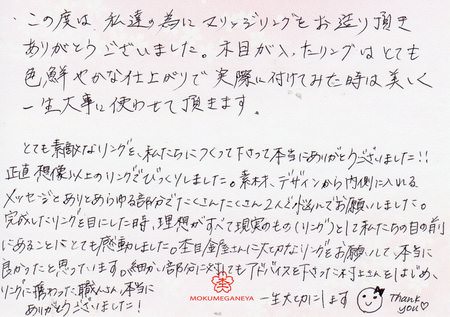 ・この度は 私達の為に マリッジリングをお造り頂き
ありがとうございました。木目が入ったリングはとても
色鮮やかな仕上がりで 実際に付けてみた時は美しく
一生大事に使わせて頂きます。
とても素敵なリングを、私たちにつくって下さって本当にありがとうございました!!
正直想像以上のリングでびっくりしました。素材、デザインから内側に入れる
メッセージとありとあらゆる部分でたくさんたくさん2人で悩んでお願いしました。
完成したリングを目にした時、理想がすべて現実のもの(リング)として私たちの目の前
にあることにとても感動しました。杢目金屋さんに大切なリングをお願いして、本当に
良かったと思っています。細かい部分に対してもアドバイスを下さった村上さんをはじめ、
リングに携わった職人さん、本当に
ありがとうございました!
一生大切にします
Thank you♡
MOKUMEGANEYA